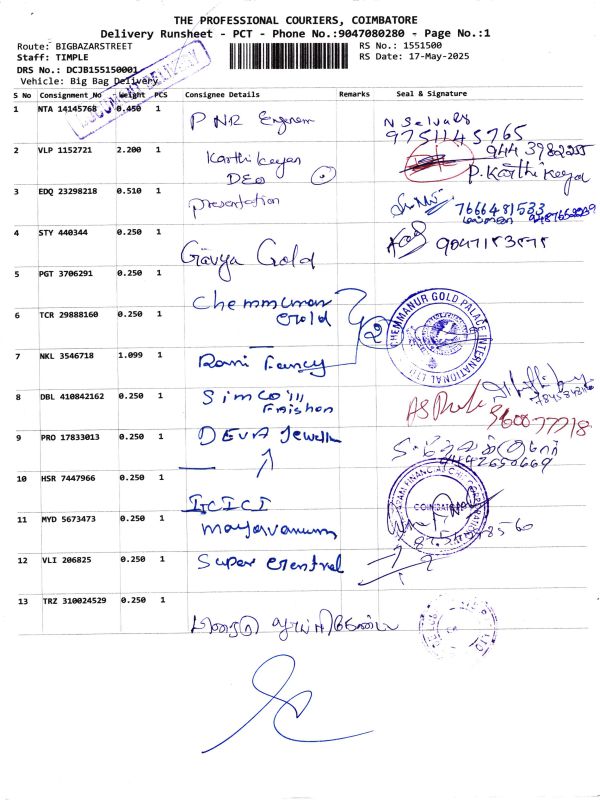 THE PROFESSIONAL COURIERS, COIMBATORE
Delivery Runsheet - PCT - Phone No.:9047080280 - Page No.:1
Route: BIGBAZARSTREET RS No.: 1551500
Staff: TIMPLE RS Date: 17-May-2025
DRS No.: DCJB155150001
Vehicle: Big Bag Delivery
DOCUMENT DELIVERY
S No Consignment No Weight PCS Consignee Details Remarks Seal & Signature
1 NTA 14145768 0.450 1 PNR N Selvals
9751145765
2 VLP 1152721 2.200 1 Karthikeyan 944 3982255
DEO P.Karthikeya
3 EDQ 23298218 0.510 1 presentation 7666481533
4 STY 440344 0.250 1 Gavya Gold
5 PGT 3706291 0.250 1
6 TCR 29888160 0.250 1 Chemmunar Gold 2
CHEMMANUR GOLD PALACE INTERNATIONAL LTD
7 NKL 3546718 1.099 1 Rani Fancy
8 DBL 410842162 0.250 1 Simcoill Faishon
9 PRO 17833013 0.250 1 DEVA Jewell
9442650669
10 HSR 7447966 0.250 1 ICICI
COIMBATORE
11 MYD 5673473 0.250 1
12 VLI 206825 0.250 1 Super
13 TRZ 310024529 0.250 1